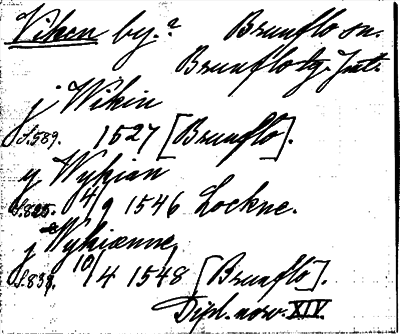 Viken by.? Brunflo sn.
Brunflo tg. Jmt.
j Wikin
S.589. 1527 [Brunflo].
y Wykian
S.825. 14/9 1546 Lockne.
j Wykiænne,
S.838. 10/4 1548 [Brunflo].
Dipl. norv. XIV.